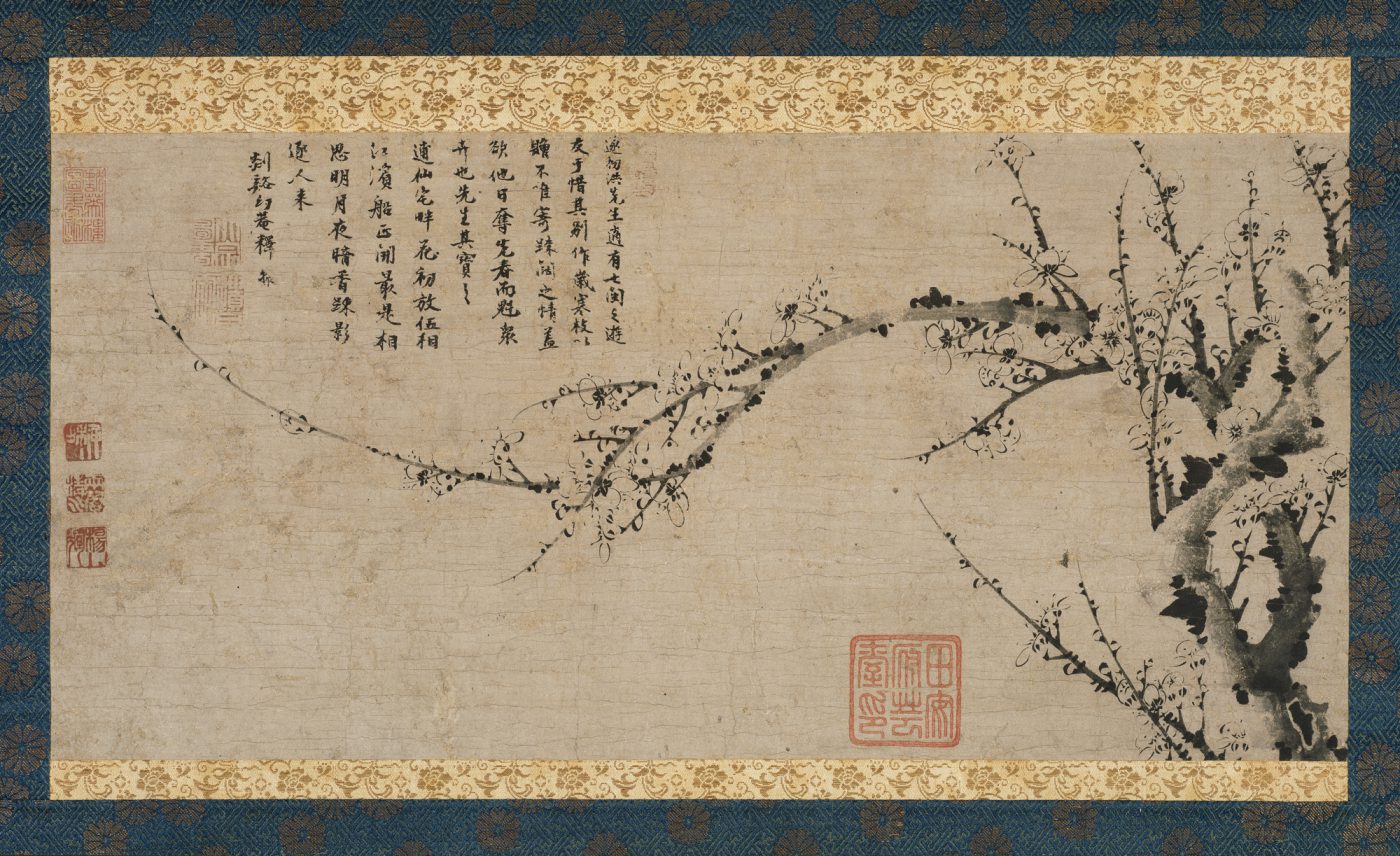 邃初洪先生適有七閩之遊
友于惜其別作歲寒枝以
贈不唯寄踈闊之情蓋
欲他日奪先春而魁衆
卉也先生其寶之
逋仙宅畔花初放伍相
江濱船正開最是相
思明月夜暗香踈影
逐人来
剡谿幻菴釋
田安
府芸
臺印